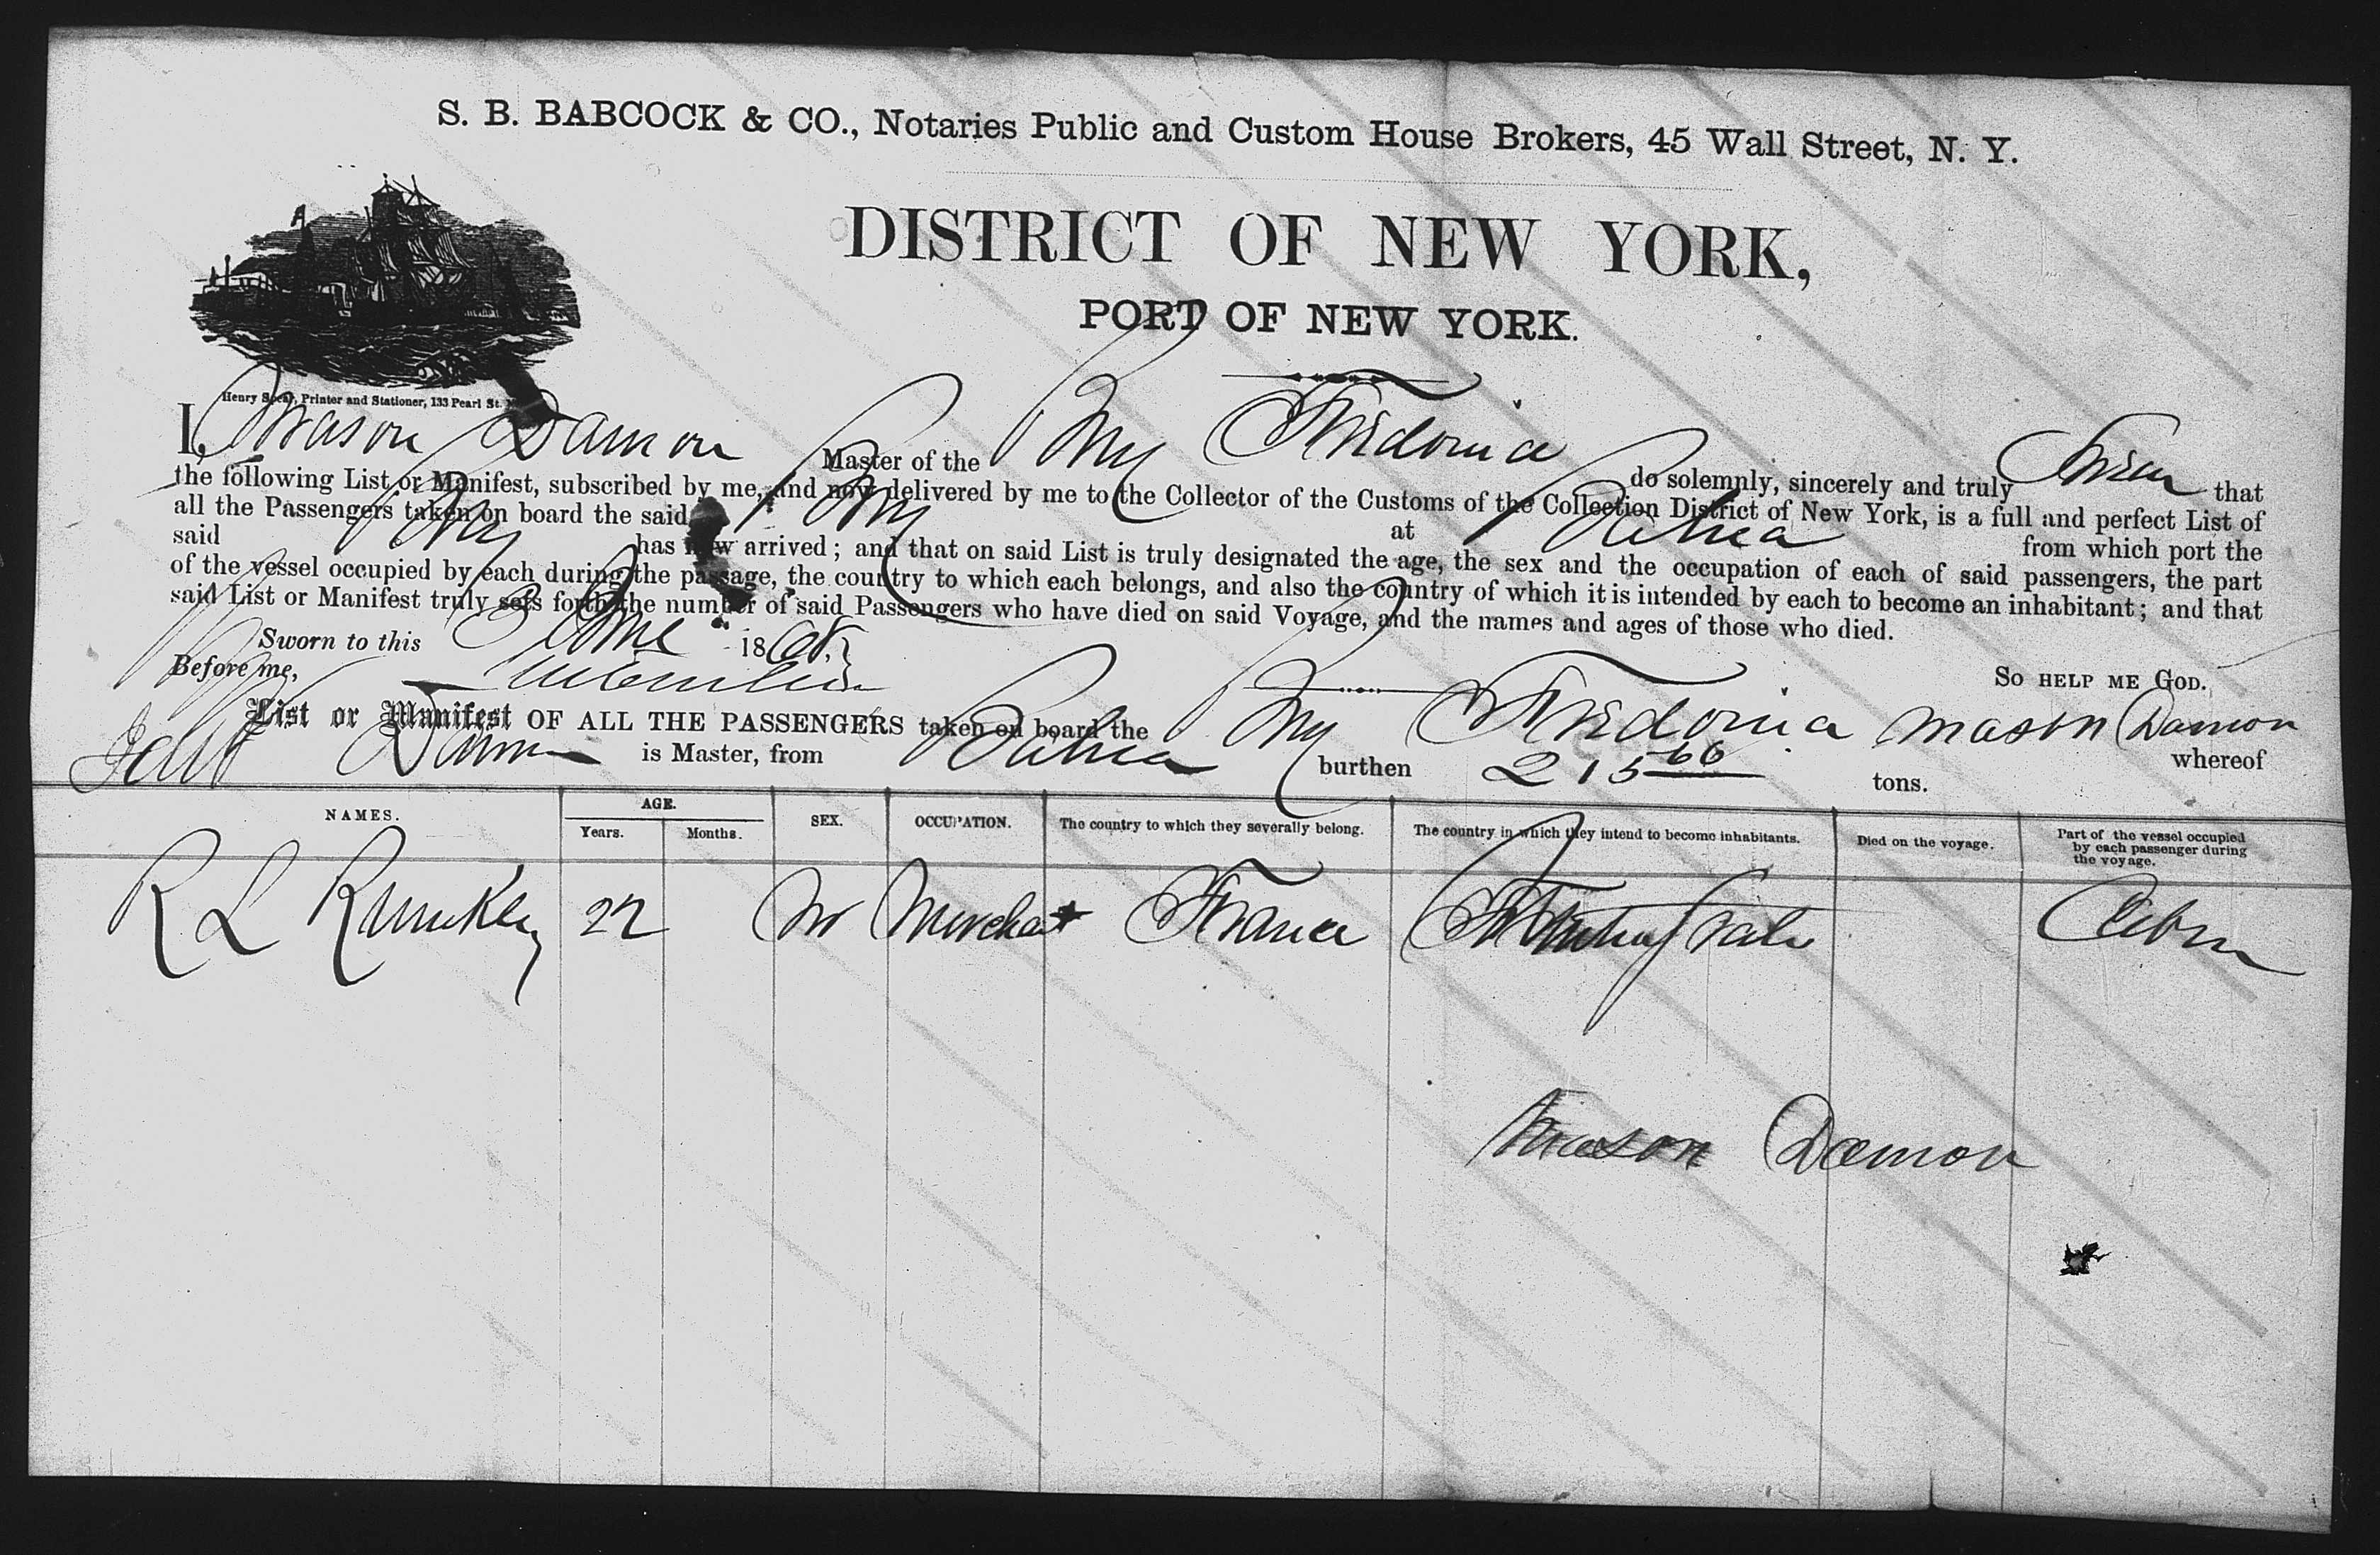 S. B. BABCOCK & CO., Notaries Public and Custom House Brokers, 45 Wall Street, N. Y.
DISTRICT OF NEW YORK,
PORT OF NEW YORK.
Henry Spear, Printer and Stationer, 133 Pearl St.
I, Mason Damon Master of the Fredonia do solemnly, sincerely and truly Swear that
the following List or Manifest, subscribed by me, and now delivered by me to the Collector of the Customs of the Collection District of New York, is a full and perfect List of
all the Passengers taken on board the said at Bahia from which port the
said has now arrived; and that on said List is truly designated the age, the sex and the occupation of each of said passengers, the part
of the vessel occupied by each during the passage, the country to which each belongs, and also the country of which it is intended by each to become an inhabitant; and that
said List or Manifest truly sets forth the number of said Passengers who have died on said Voyage, and the names and ages of those who died.
Sworn to this June 1868.
So HELP ME GOD.
Before me,
List or Manifest OF ALL THE PASSENGERS taken on board the Fredonia Mason Damon
whereof Damon is Master, from Bahia burthen 215 66 tons.
NAMES. AGE. Years. Months. SEX. OCCUPATION. The country to which they severally belong. The country in which they intend to become inhabitants. Died on the voyage. Part of the vessel occupied by each passenger during the voyage.
R L 22 M Merchant France Cabin
Mason Damon